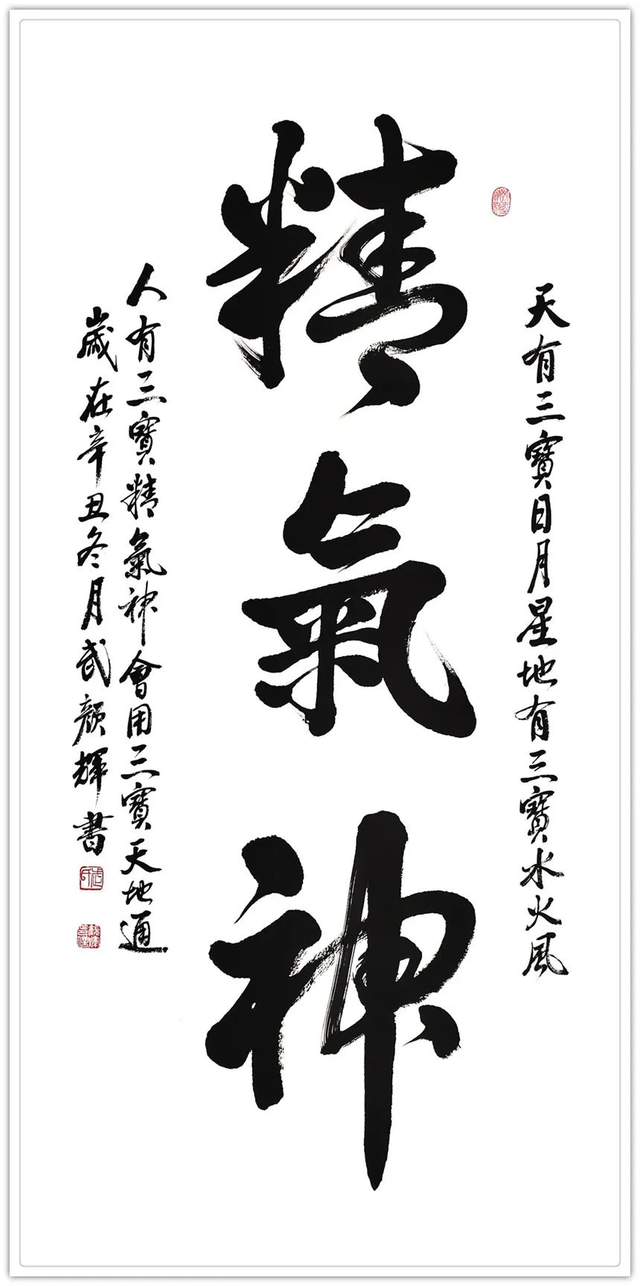 天有三寶日月星地有三寶水火風
精氣神
人有三寶精氣神會用三寶天地通
歲在辛丑冬月武顏輝書